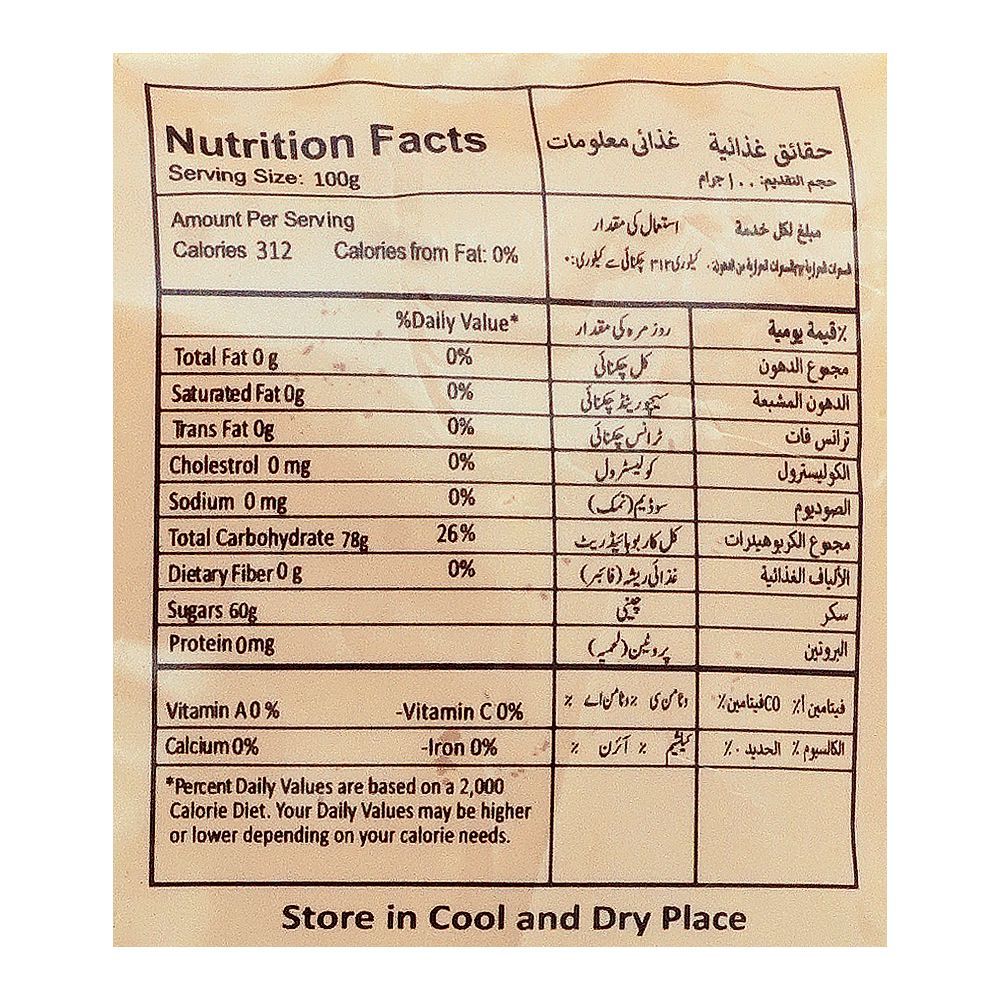 Nutrition Facts غذائی معلومات حقائق غذائية
Serving Size: 100g حجم التقديم: ١٠٠ جرام
Amount Per Serving استعمال کی مقدار مبلغ لكل خدمة
Calories 312 Calories from Fat: 0% کیلوری ۳۱۲ چکنائی سے کیلوری: ۰
%Daily Value* روز مرہ کی مقدار ٪قيمة يومية
Total Fat 0 g 0% کل چکنائی مجموع الدهون
Saturated Fat 0g 0% سیچوریٹڈ چکنائی الدهون المشبعة
Trans Fat 0g 0% ٹرانس چکنائی ترانس فات
Cholestrol 0 mg 0% کولیسٹرول الكوليسترول
Sodium 0 mg 0% سوڈیم (نمک) الصوديوم
Total Carbohydrate 78g 26% کل کاربوہائیڈریٹ مجموع الكربوهيدرات
Dietary Fiber 0 g 0% غذائی ریشہ (فائبر) الألياف الغذائية
Sugars 60g چینی سكر
Protein 0mg پروٹین (لحمیہ) البروتين
Vitamin A 0 % -Vitamin C 0% وٹامن سی ٪ وٹامن اے ٪ فيتامين ا٪ COفيتامين٪
Calcium 0% -Iron 0% کیلشیم ٪ آئرن ٪ الكالسيوم ٪ الحديد ٠٪
*Percent Daily Values are based on a 2,000
Calorie Diet. Your Daily Values may be higher
or lower depending on your calorie needs.
Store in Cool and Dry Place